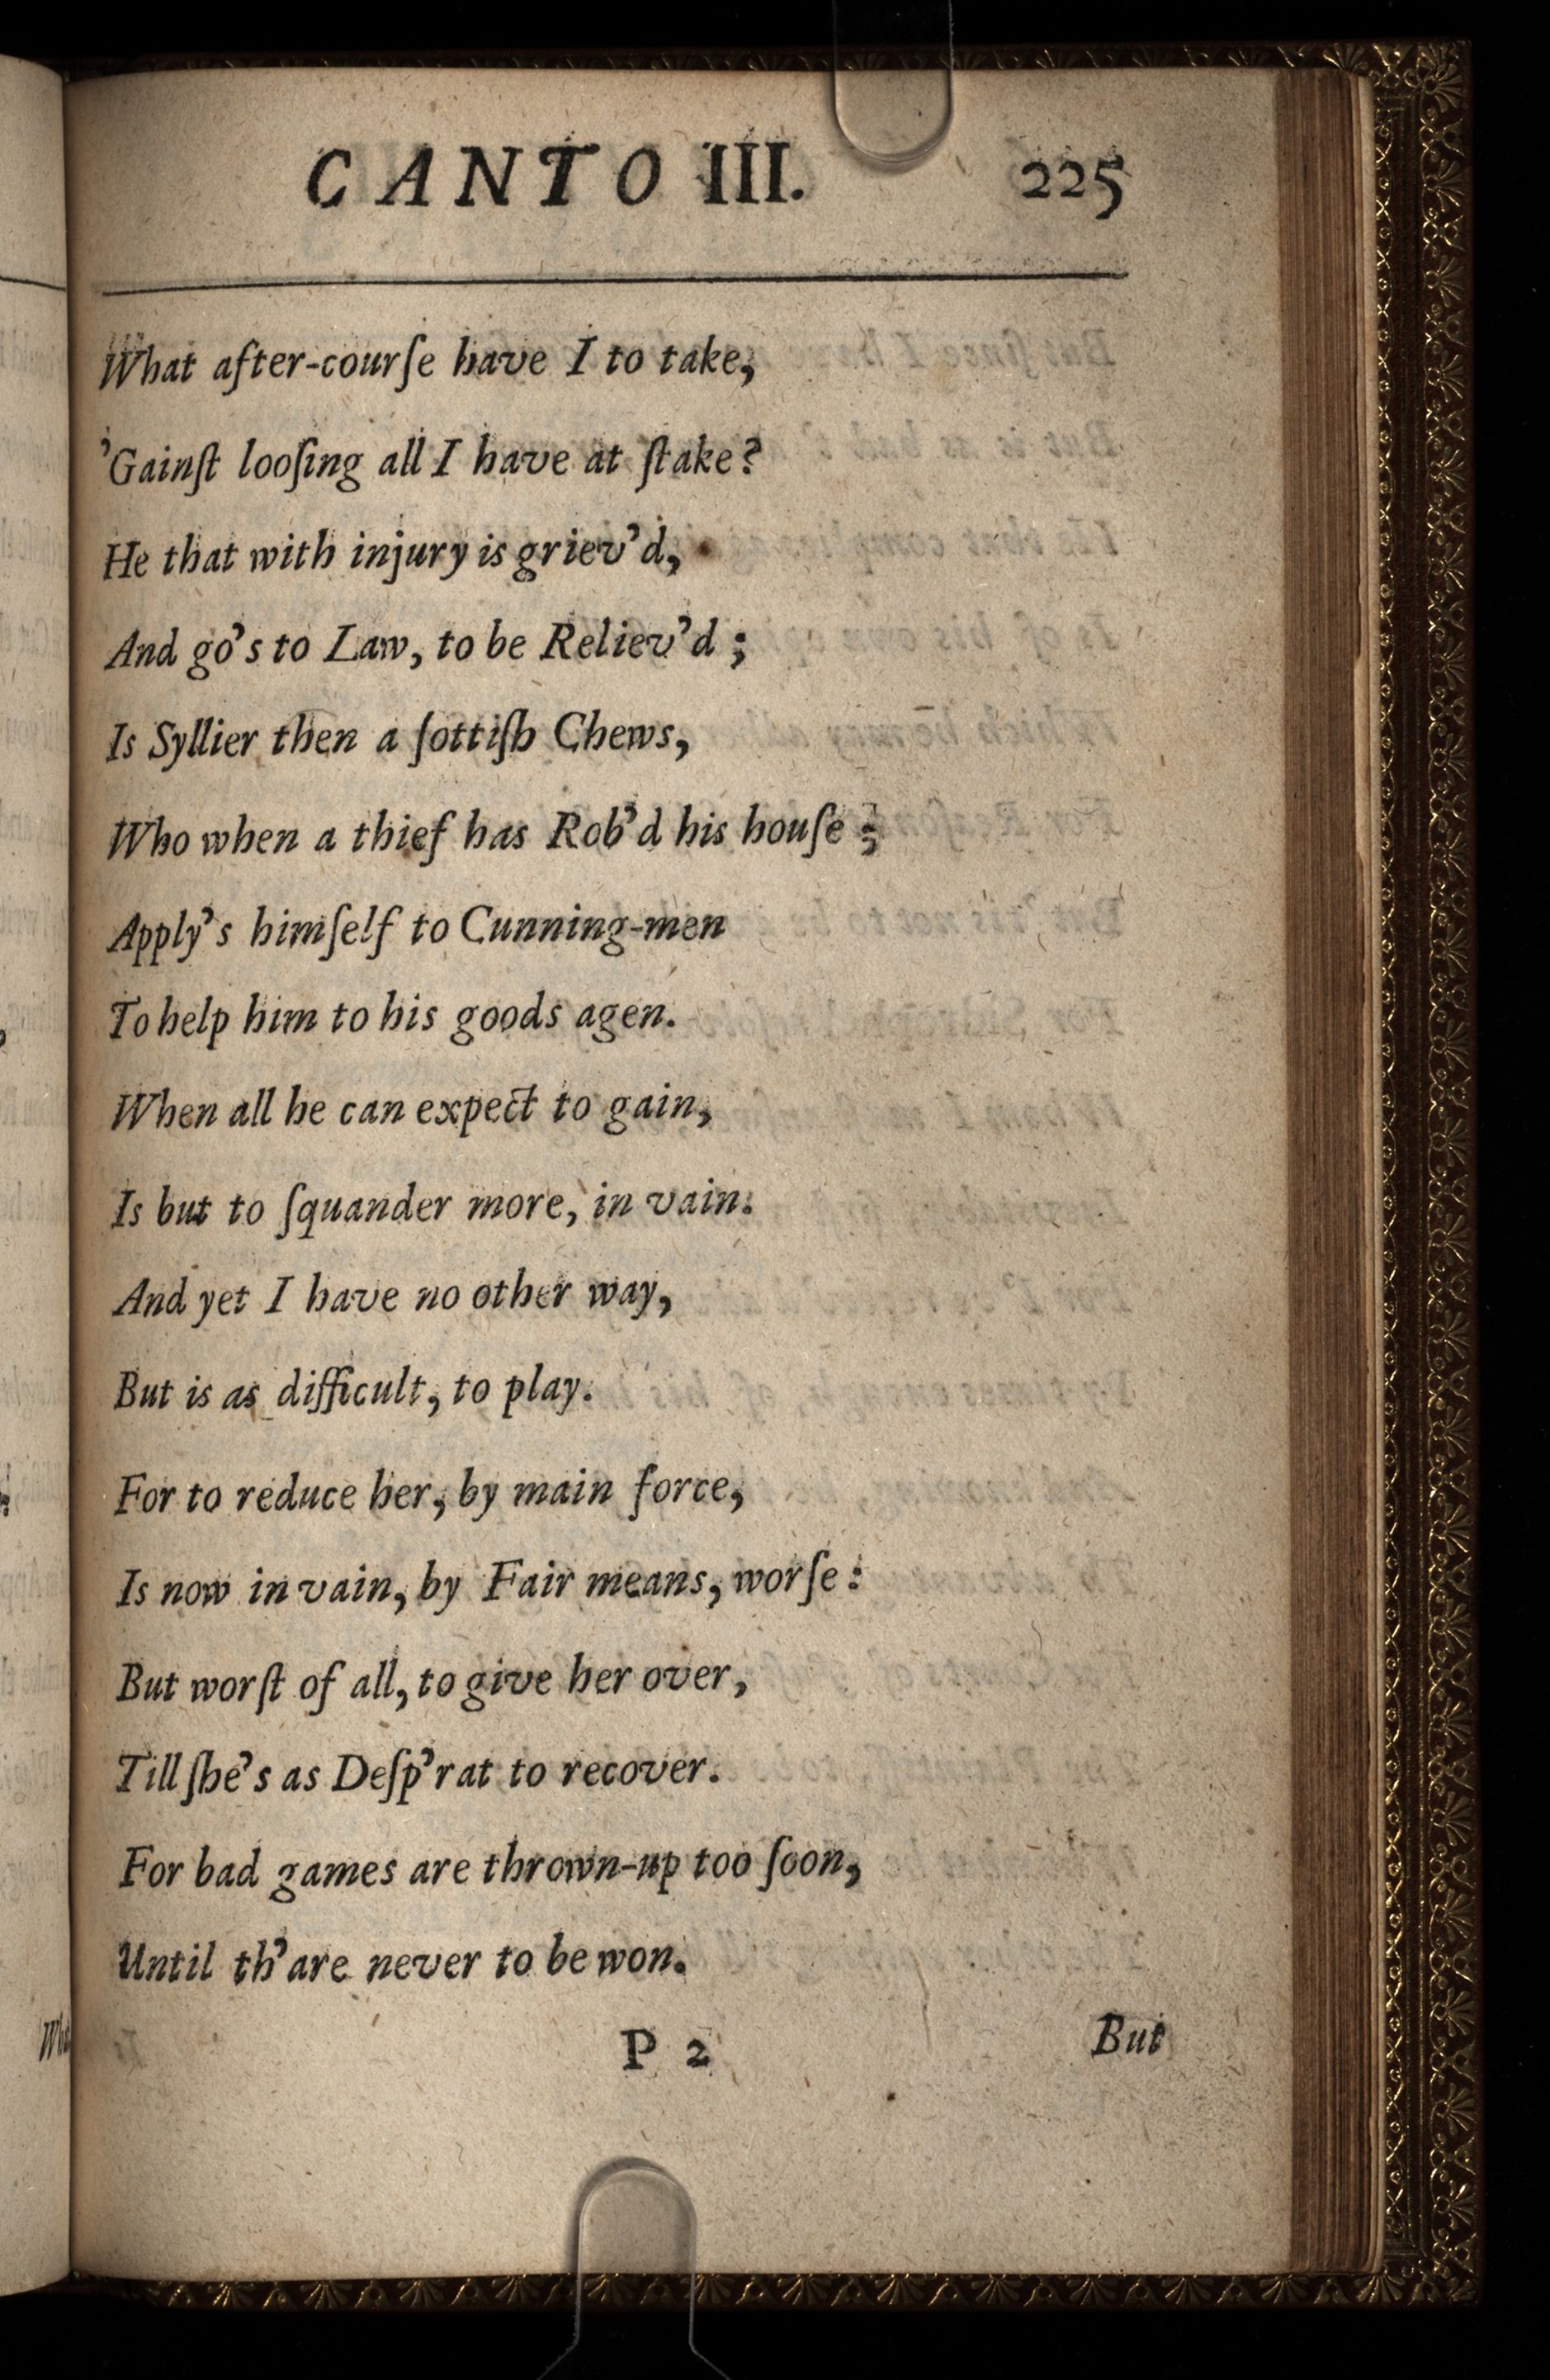 CANTO III. 225
What after-courſe have I to take,
'Gainſt looſing all I have at ſtake?
He that with injury is griev'd,
And go's to Law, to be Reliev'd ;
Is Syllier then a ſottiſh Chews,
Who when a thief has Rob'd his houſe ;
Apply's himſelf to Cunning-men
To help him to his goods agen.
When all he can expect to gain,
Is but to ſquander more, in vain.
And yet I have no other way,
But is as difficult, to play.
For to reduce her, by main force,
Is now in vain, by Fair means, worſe :
But worſt of all, to give her over,
Till ſhe's as Deſp'rat to recover.
For bad games are thrown-up too ſoon,
Until th'are never to be won.
P 2 But